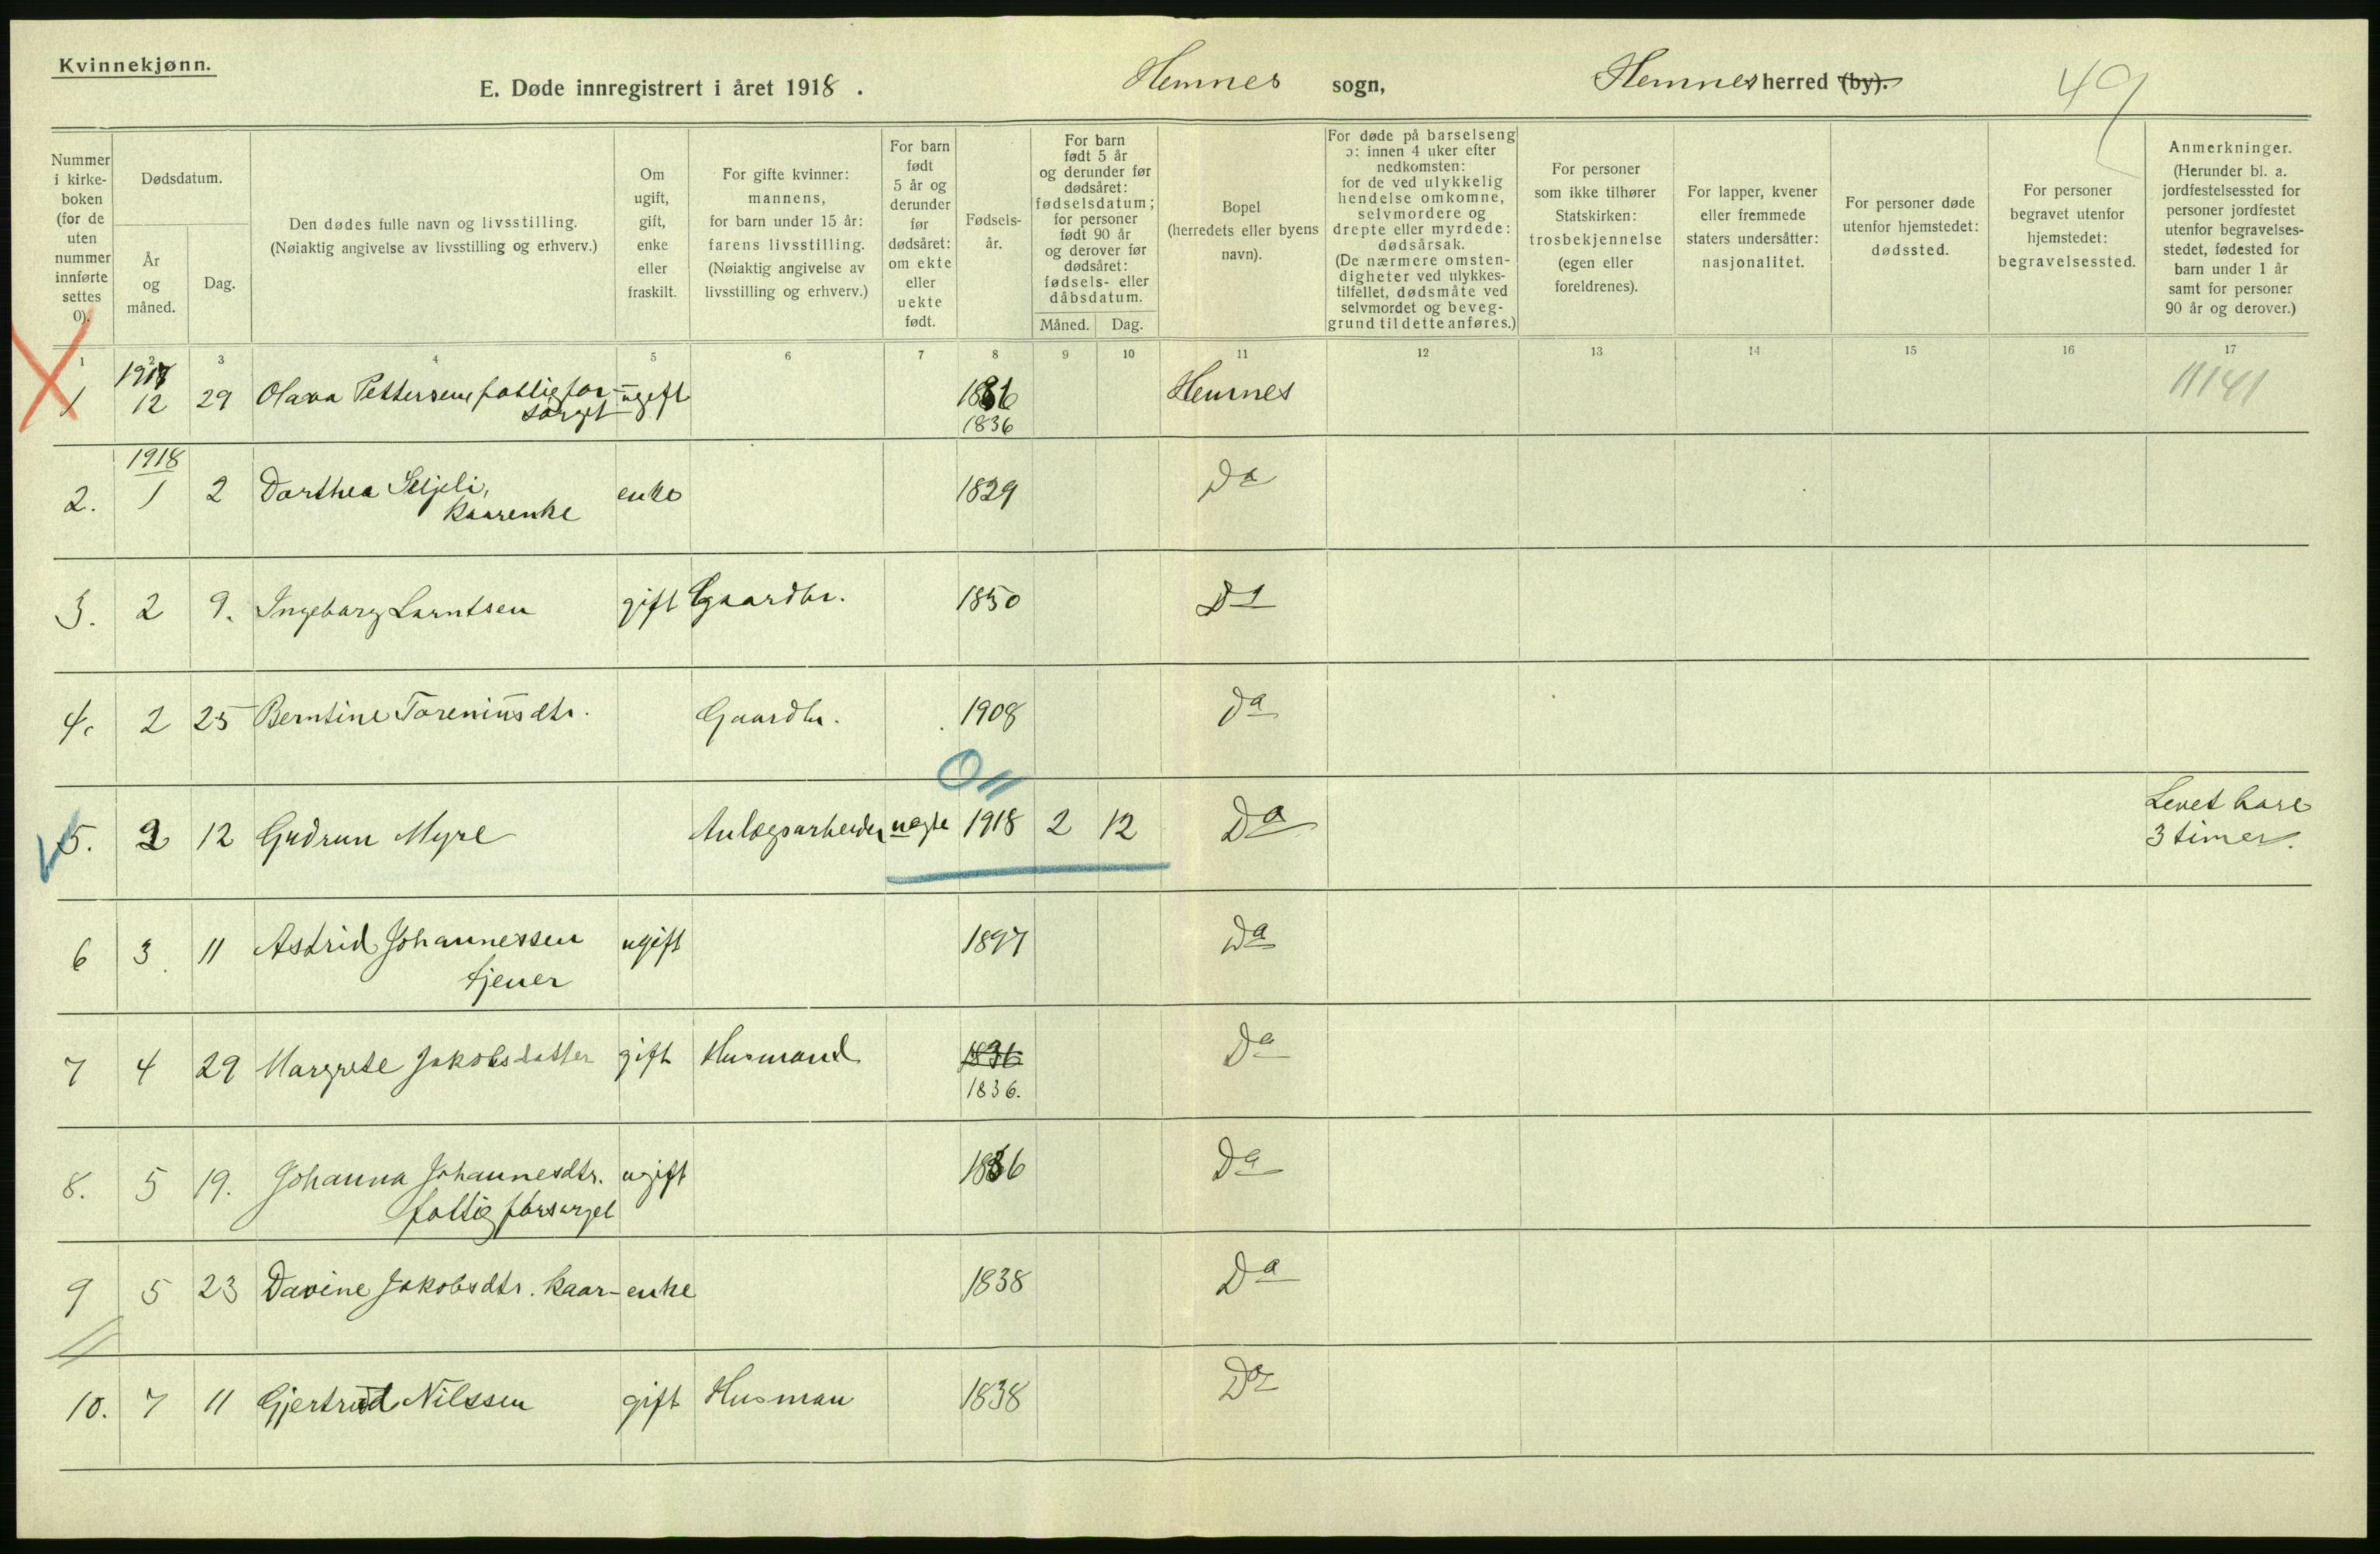 Kvinnekjønn.
E. Døde innregistrert i året 1918.
Hemnes sogn,
Hemnes herred (by).
49
Nummer i kirkeboken (for de uten nummer innførte settes 0).
Dødsdatum.
År og måned.
Dag.
Den dødes fulle navn og livsstilling.
(Nøiaktig angivelse av livsstilling og erhverv.)
Om ugift, gift, enke eller fraskilt.
For gifte kvinner: mannens, for barn under 15 år: farens livsstilling.
(Nøiaktig angivelse av livsstilling og erhverv.)
For barn født 5 år og derunder før dødsåret: om ekte eller uekte født.
Fødselsår.
For barn født 5 år og derunder før dødsåret: fødselsdatum; for personer født 90 år og derover før dødsåret: fødsels- eller dåbsdatum.
Måned.
Dag.
Bopel
(herredets eller byens navn).
For døde på barselseng ɔ: innen 4 uker efter nedkomsten: for de ved ulykkelig hendelse omkomne, selvmordere og drepte eller myrdede: dødsårsak.
(De nærmere omstendigheter ved ulykkestilfellet, dødsmåte ved selvmordet og beveggrund til dette anføres.)
For personer som ikke tilhører Statskirken: trosbekjennelse (egen eller foreldrenes).
For lapper, kvener eller fremmede staters undersåtter: nasjonalitet.
For personer døde utenfor hjemstedet: dødssted.
For personer begravet utenfor hjemstedet: begravelsessted.
Anmerkninger.
(Herunder bl. a. jordfestelsessted for personer jordfestet utenfor begravelsesstedet, fødested for barn under 1 år samt for personer 90 år og derover.)
1 2 3 4 5 6 7 8 9 10 11 12 13 14 15 16 17
1917
1 12 29 Olava Pettersen, fattigfor- ugift 1836 Hemnes 11141
sørget 1836
1918
2. 1 2 Dorthea Seljeli, enke 1829 Do
Kaarenke
3. 2 9. Ingeborg Larntsen gift Gaardbr. 1850 Do
4. 2 25 Berntine Toreniusdtr. Gaardbr. 1908 Do
5. 2 12 Gudrun Myre Anlægsarbeider uegte 1918 2 12 Do Levet bare
3 timer.
6 3 11 Astrid Johannessen ugift 1897 Do
tjener
7 4 29 Margrete Jakobsdatter gift Husmand 1836 Do
1836.
8. 5 19. Johanna Johannesdtr. ugift 1836 Do
fattigforsørget
9 5 23 Davine Jakobsdtr. Kaar- enke 1838 Do
10. 7 11 Gjertrud Nilssen gift Husman 1838 Do